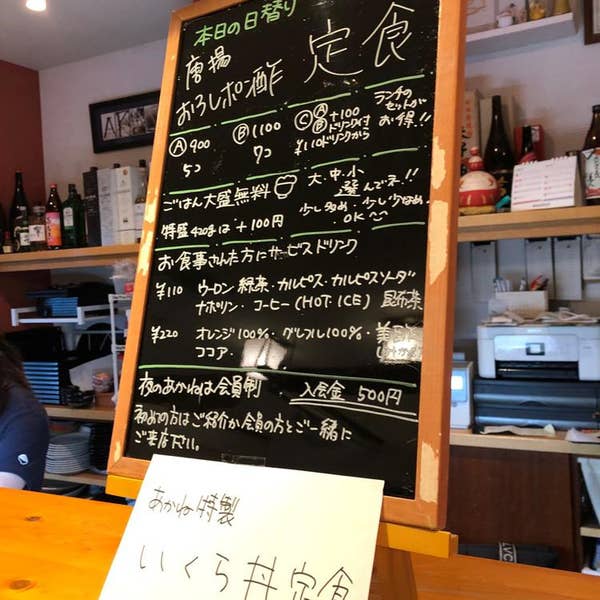 本日の日替り
唐揚
おろしポン酢 定食
Ⓐ 900
5コ
Ⓑ 1100
7コ
Ⓒ Ⓐ Ⓑ +100
ドリンク付
¥110ドリンクから
ランチの
セットが
お得!!
ごはん大盛無料
特盛420gは+100円
大・中・小
選んでネ!!
少し多め、少し少なめ
OK
お食事された方にサービスドリンク
¥110 ウーロン 緑茶・カルピス・カルピスソーダ
ナポリン・コーヒー(HOT・ICE) 昆布茶
¥220 オレンジ100%・グレフル100%・
ココア・
夜のあかねは会員制 入会金 500円
初めての方はご紹介か会員の方とご一緒に
ご来店下さい。
あかね特製
いくら丼定食